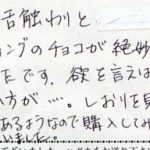 舌触わりと
ングのチョコが絶妙
たです。欲を言えは
方が…。しおりを見
あるようなので購入してみ
いました。